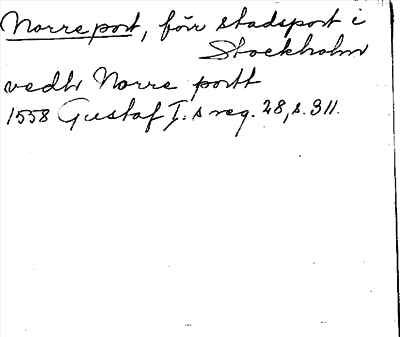 Norreport, förr stadsport i
Stockholm
vedh Norre portt
1558 Gustaf I:s reg. 28, s. 311.